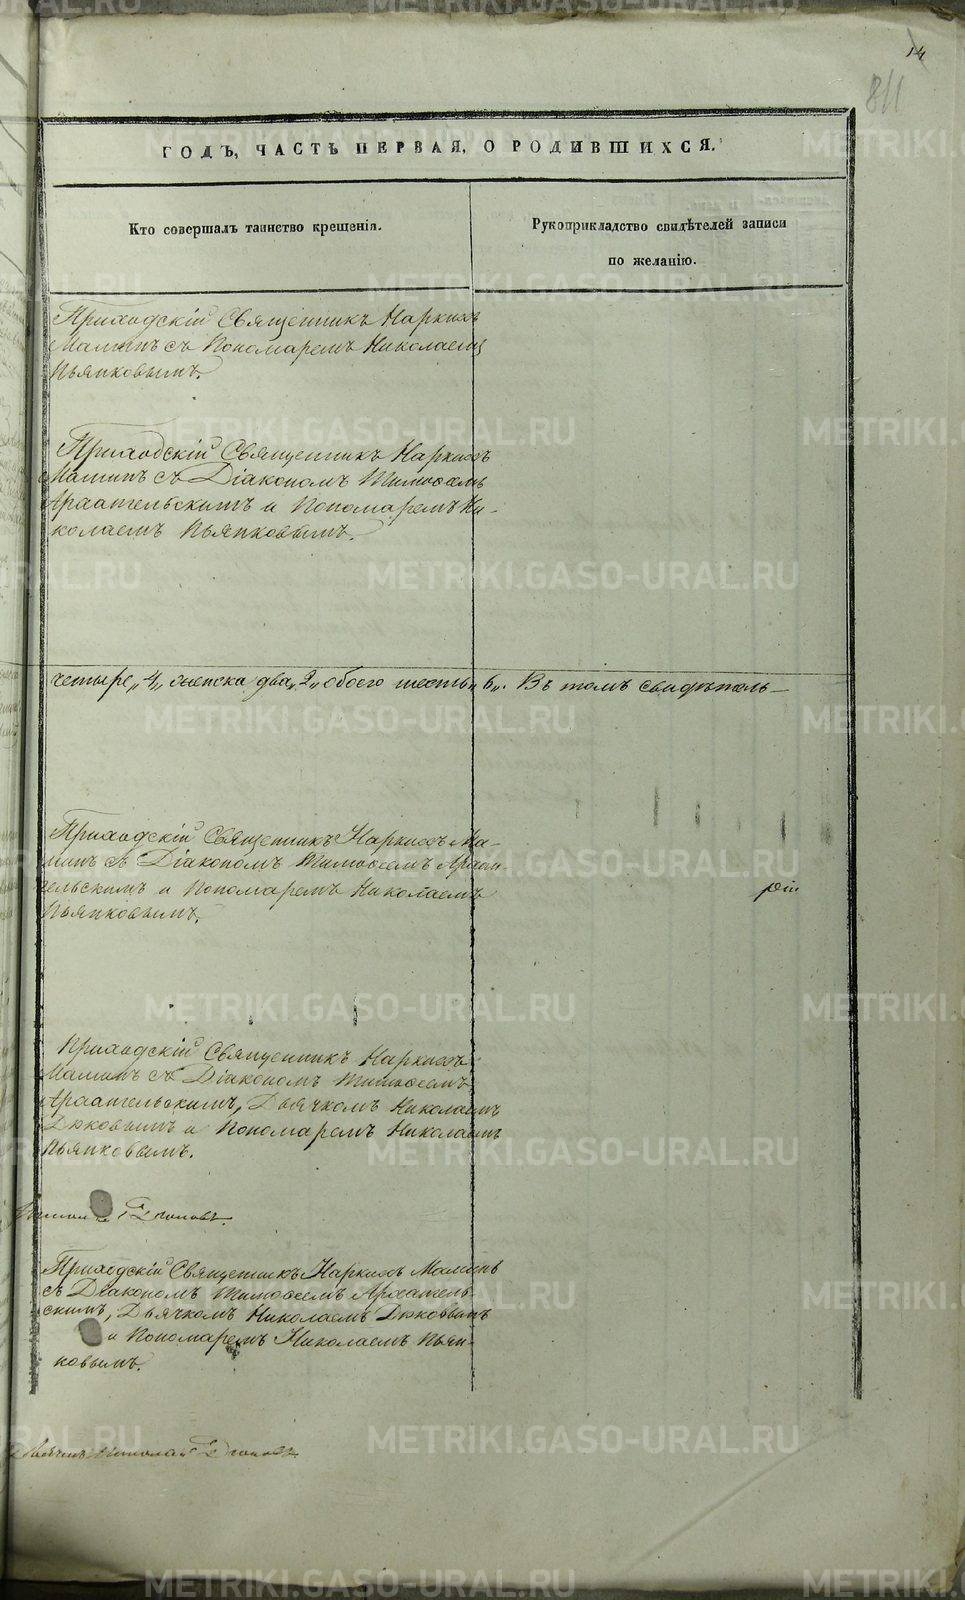 14
811
ГОДЪ, ЧАСТЬ ПЕРВАЯ, О РОДИВШИХСЯ.
Кто совершалъ таинство крещенія.
Рукоприкладство свидѣтелей записи
по желанію.
Приходскій Священникъ Наркисъ
Маминъ съ Пономаремъ Николаемъ
Пьянковымъ.
Приходскій Священникъ Наркисъ
Маминъ съ Діакономъ Тимоѳеемъ
Архангельскимъ и Пономаремъ Ни-
колаемъ Пьянковымъ.
четыре „4„ женска два „2„ обоего шесть „6„. Въ томъ свидѣтель-
Приходскій Священникъ Наркисъ Ма-
минъ съ Діакономъ Тимоѳеемъ Архан
гельскимъ и Пономаремъ Николаемъ
Пьянковымъ.
Приходскій Священникъ Наркисъ
Маминъ съ Діакономъ Тимоѳеемъ
Архангельскимъ, Дьячкомъ Николаемъ
Дюковымъ и Пономаремъ Николаемъ
Пьянковымъ.
Приходскій Священникъ Наркисъ Маминъ
съ Діакономъ Тимоѳеемъ Архангель-
скимъ, Дьячкомъ Николаемъ Дюковымъ
и Пономаремъ Николаемъ Пьян-
ковымъ.
METRIKI.GASO-URAL.RU